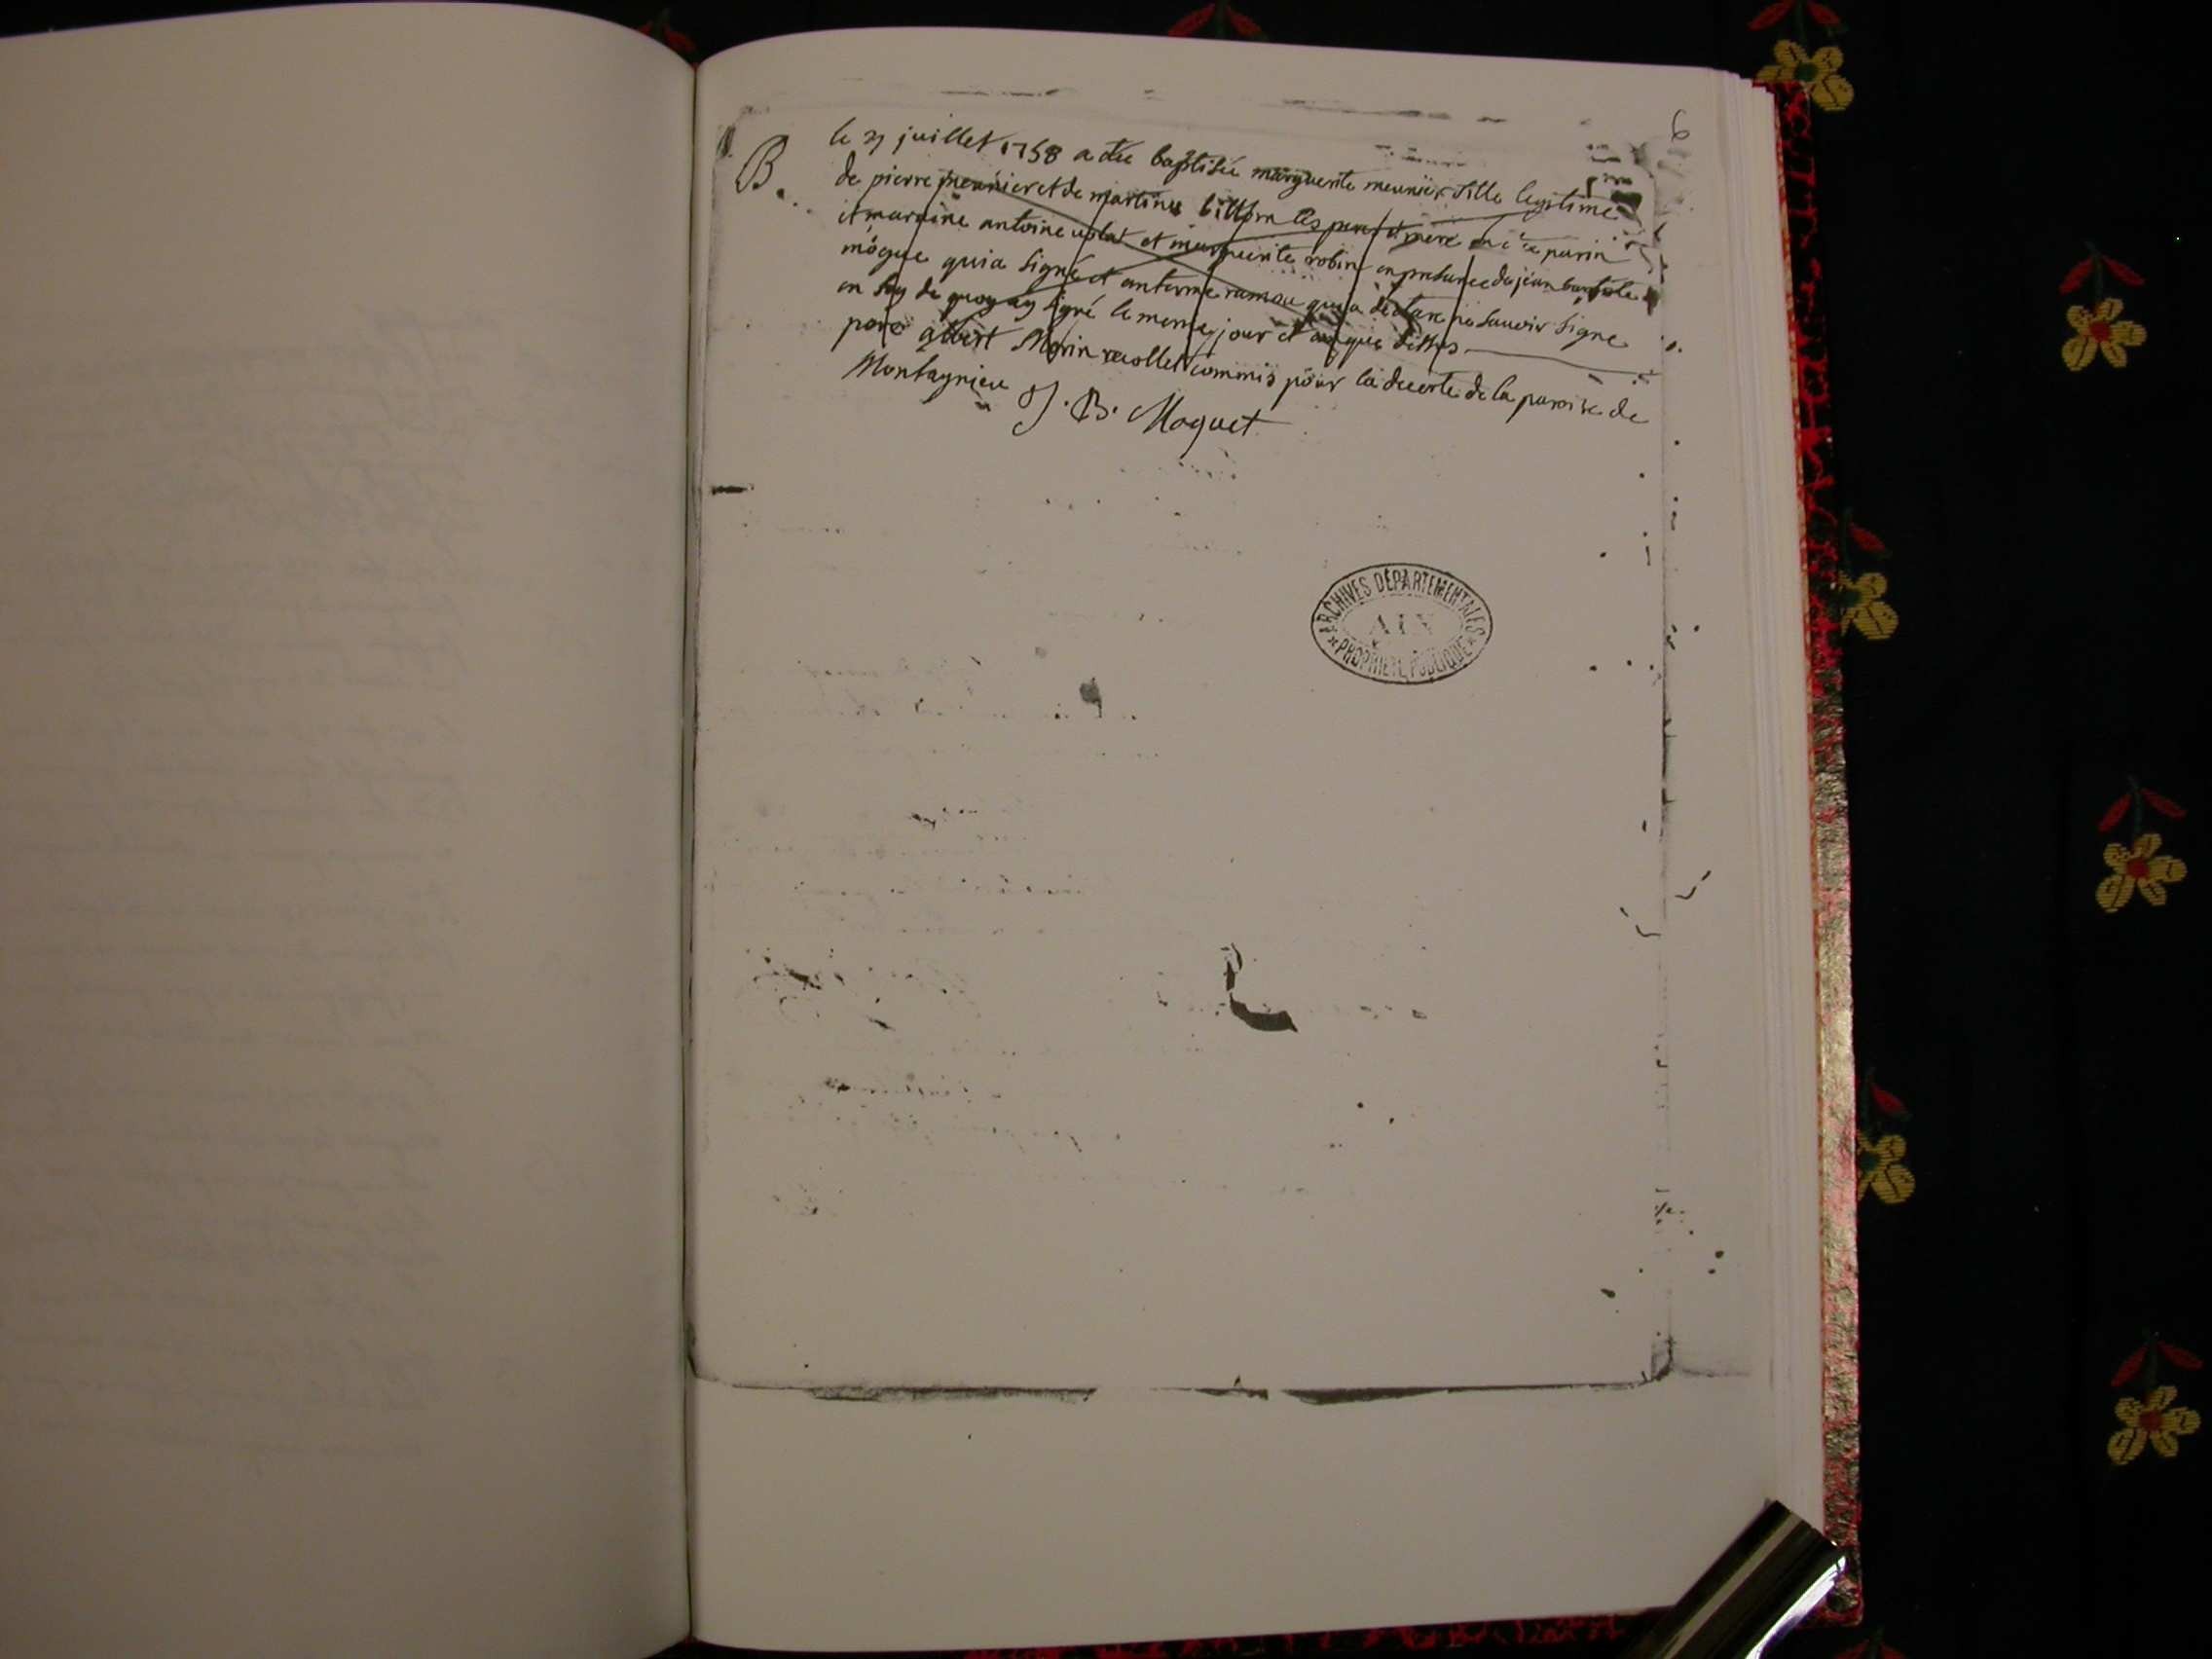 6
B.
le 31 juillet 1758 a été baptisée marguerite meunier fille legitime
de pierre meunier et de martine billion les pere et mere parin
et maraine antoine et marguerite robin en presance de jean baptiste
moque qui a signé et anterme ramau qui a déclaré ne savoir signe
en foy de quoy ay signé le meme jour et an que dessus
pere albert Morin recollet commis pour la decerte de la paroise de
Montagnieu J. B. Moquet
ARCHIVES DÉPARTEMENTALES
AIN
PROPRIÉTÉ PUBLIQUE